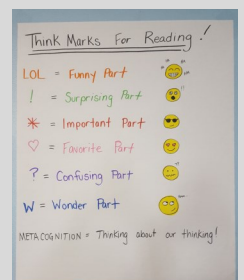 Think Marks For Reading!
LOL = Funny Part
! = Surprising Part
* = Important Part
♡ = Favorite Part
? = Confusing Part
W = Wonder Part
METACOGNITION = Thinking about our thinking!